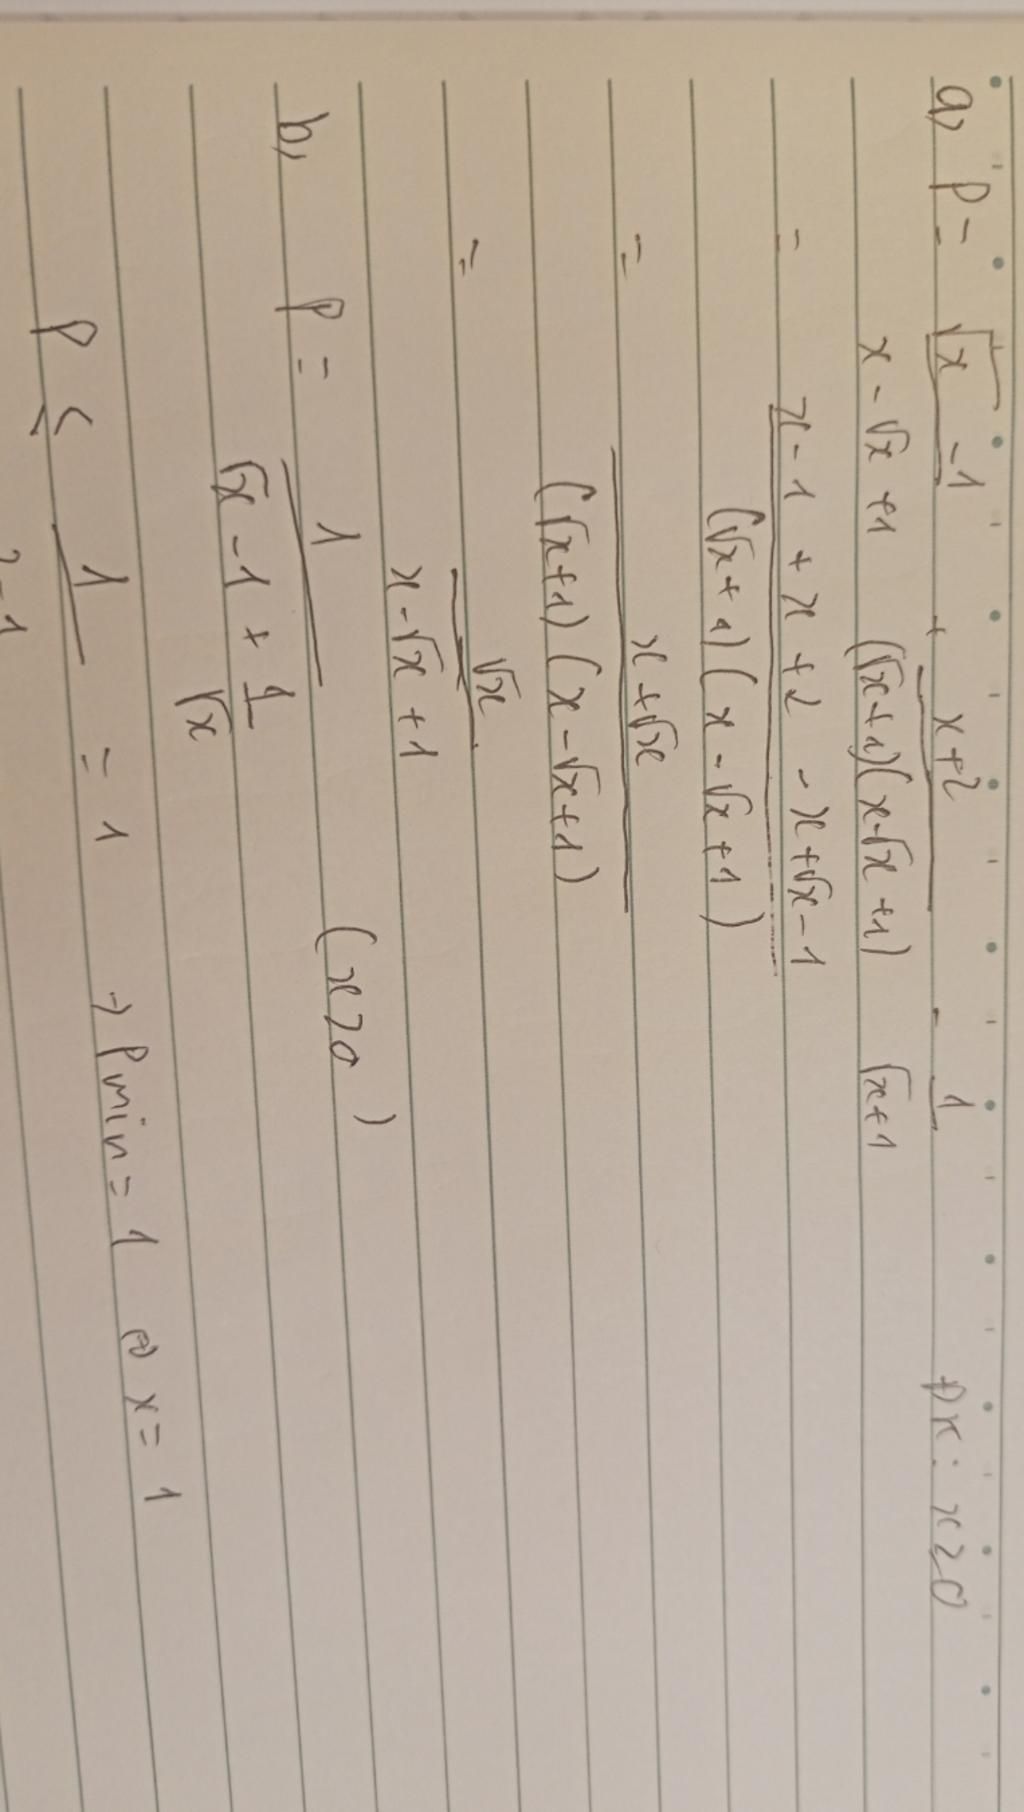 a, P = √x - 1 / x - √x + 1 + x+2 / (√x+1)(x-√x+1) - 1 / √x+1 ĐK: x ≥ 0
= x - 1 + x + 2 - x + √x - 1 / (√x+1)(x - √x + 1)
= x + √x / (√x+1)(x - √x + 1)
= √x / x - √x + 1
b, P = 1 / √x - 1 + 1/√x (x > 0)
P ≤ 1 / 2 - 1 = 1 → P min = 1 ⇔ x = 1